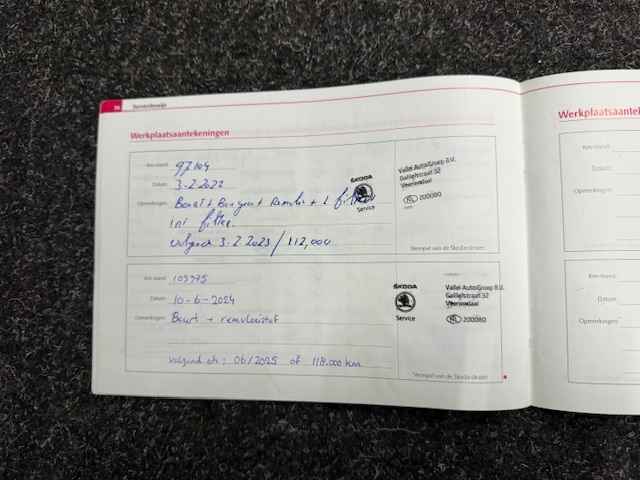 Werkplaatsaantekeningen
Km-stand:
Datum: 3-2-2022
Opmerkingen:
ini filter
volgende 3-2-2023 / 112,000
ŠKODA
Service
Vallei AutoGroep B.V.
Galileïstraat 32
Veenendaal
NL 200080
Stempel van de Škoda-dealer
Km-stand:
Datum: 10-6-2024
Opmerkingen: Beurt + remvloeistof
Volgende ob: 06/2025 of 118.000 km
ŠKODA
Service
Vallei AutoGroep B.V.
Galileïstraat 32
Veenendaal
NL 200080
Stempel van de Škoda-dealer
Werkplaatsaantek
Km-stand:
Datum:
Opmerkingen:
Km-stand:
Datum:
Opmerkingen: